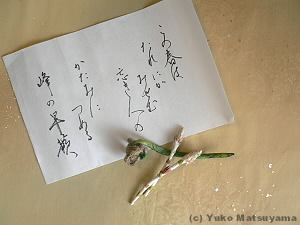 この春は
たれにか
みせむ
亡き人の
かたみに
つめる
峰の早蕨
(c) Yuko Matsuyama